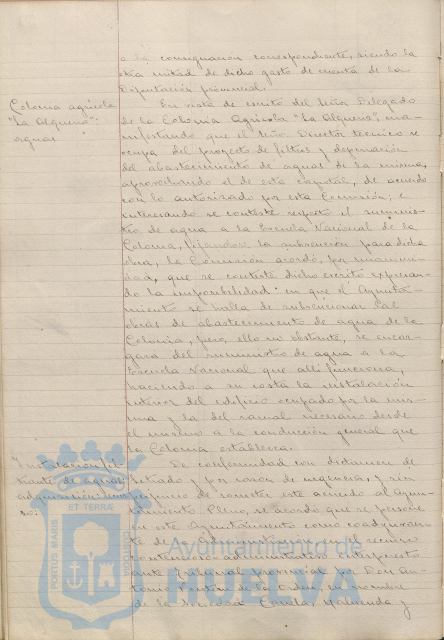 a la consignacion correspondiente, siendo la
otra mitad de dicho gasto de cuenta de la
Diputación provincial.
Colonia agrícola
"La Alquería"-
aguas
En vista de escrito del Señor Delegado
de la Colonia Agrícola "La Alquería", ma-
nifestando que el Señor Director técnico se
ocupa del proyecto de filtros y depuración
del abastecimiento de aguas de la misma,
aprovechando el de esta capital, de acuerdo
con lo autorizado por esta Comisión; e
interesando se conteste respecto el suminis-
tro de agua a la Escuela Nacional de la
Colonia, fijandose la subvención para dicha
obra, la Comisión acordó, por unanimi-
dad, que se conteste dicho escrito expresan-
do la imposibilidad en que el Ayunta-
miento se halla de subvencionar las
obras de abastecimiento de agua de la
Colonia, pero, ello no obstante, se encar-
gará del suministro de agua a la
Escuela Nacional que alli funciona,
haciendo a su costa la instalación
interior del edificio ocupado por la mis-
ma y la del ramal necesario desde
el mismo a la conducción general que
la Colonia establezca.
Instalacion fil-
trante de aguas
De conformidad con dictamen de
Letrado y por razon de urgencia, y sin
perjuicio de someter este acuerdo al Ayun-
tamiento Pleno, se acordó que se persone
en este Ayuntamiento como coadyuvan-
te de la Administracion en el recurso
contencioso administrativo interpuesto
ante Tribunal provincial por Don An-
tonio de la en nombre
de la Sociedad y
PORTUS MARIS
ET TERRAE
Ayuntamiento de
HUELVA